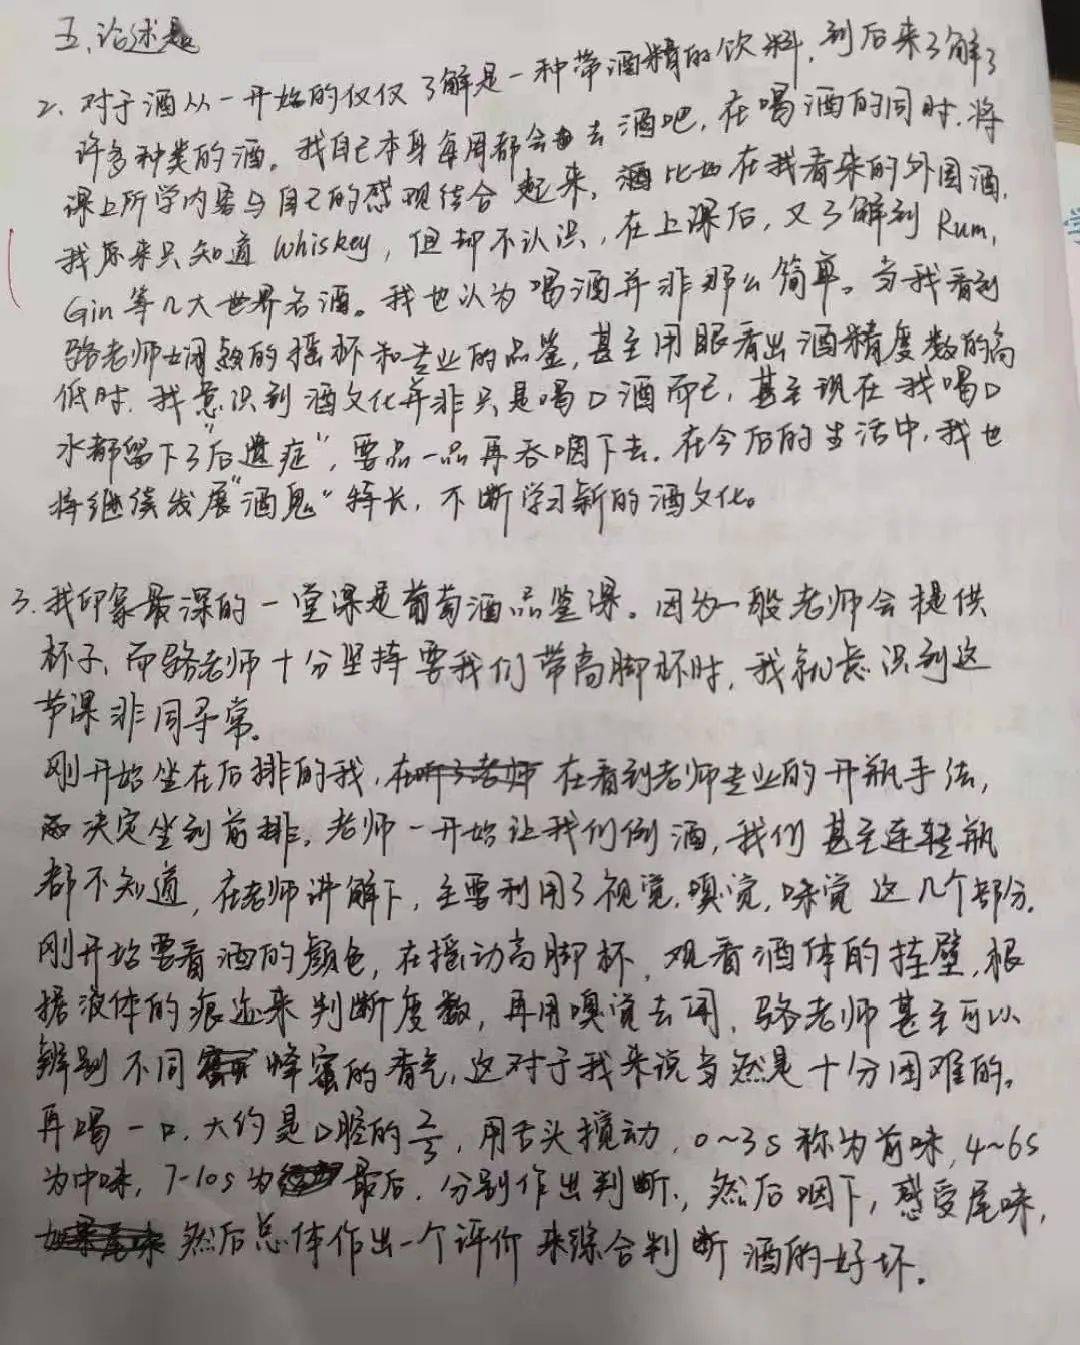 五、论述题
2. 对于酒从一开始的仅仅了解是一种带酒精的饮料,到后来了解了
许多种类的酒。我自己本身每周都会去酒吧,在喝酒的同时,将
课上所学内容与自己的感观结合起来,酒比如在我看来的外国酒,
我原来只知道 Whiskey,但却不认识,在上课后,又了解到 Rum,
Gin 等几大世界名酒。我也认为喝酒并非那么简单。当我看到
骆老师娴熟的摇杯和专业的品鉴,甚至用眼看出酒精度数的高
低时,我意识到酒文化并非只是喝口酒而已,甚至现在我喝口
水都留下了“后遗症”,要品一品再吞咽下去。在今后的生活中,我也
将继续发展“酒鬼”特长,不断学习新的酒文化。
3. 我印象最深的一堂课是葡萄酒品鉴课。因为一般老师会提供
杯子,而骆老师十分坚持要我们带高脚杯时,我就意识到这
节课非同寻常。
刚开始坐在后排的我,在看到老师专业的开瓶手法,
而决定坐到前排。老师一开始让我们倒酒,我们甚至连转瓶
都不知道,在老师讲解下,主要利用了视觉,嗅觉,味觉这几个部分。
刚开始要看酒的颜色,在摇动高脚杯,观看酒体的挂壁,根
据液体的痕迹来判断度数,再用嗅觉去闻,骆老师甚至可以
辨别不同蜂蜜的香气,这对于我来说当然是十分困难的。
再喝一口,大约是口腔的2/3,用舌头搅动,0~3s称为前味,4~6s
为中味,7-10s为最后,分别作出判断,然后咽下,感受尾味,
然后总体作出一个评价来综合判断酒的好坏。